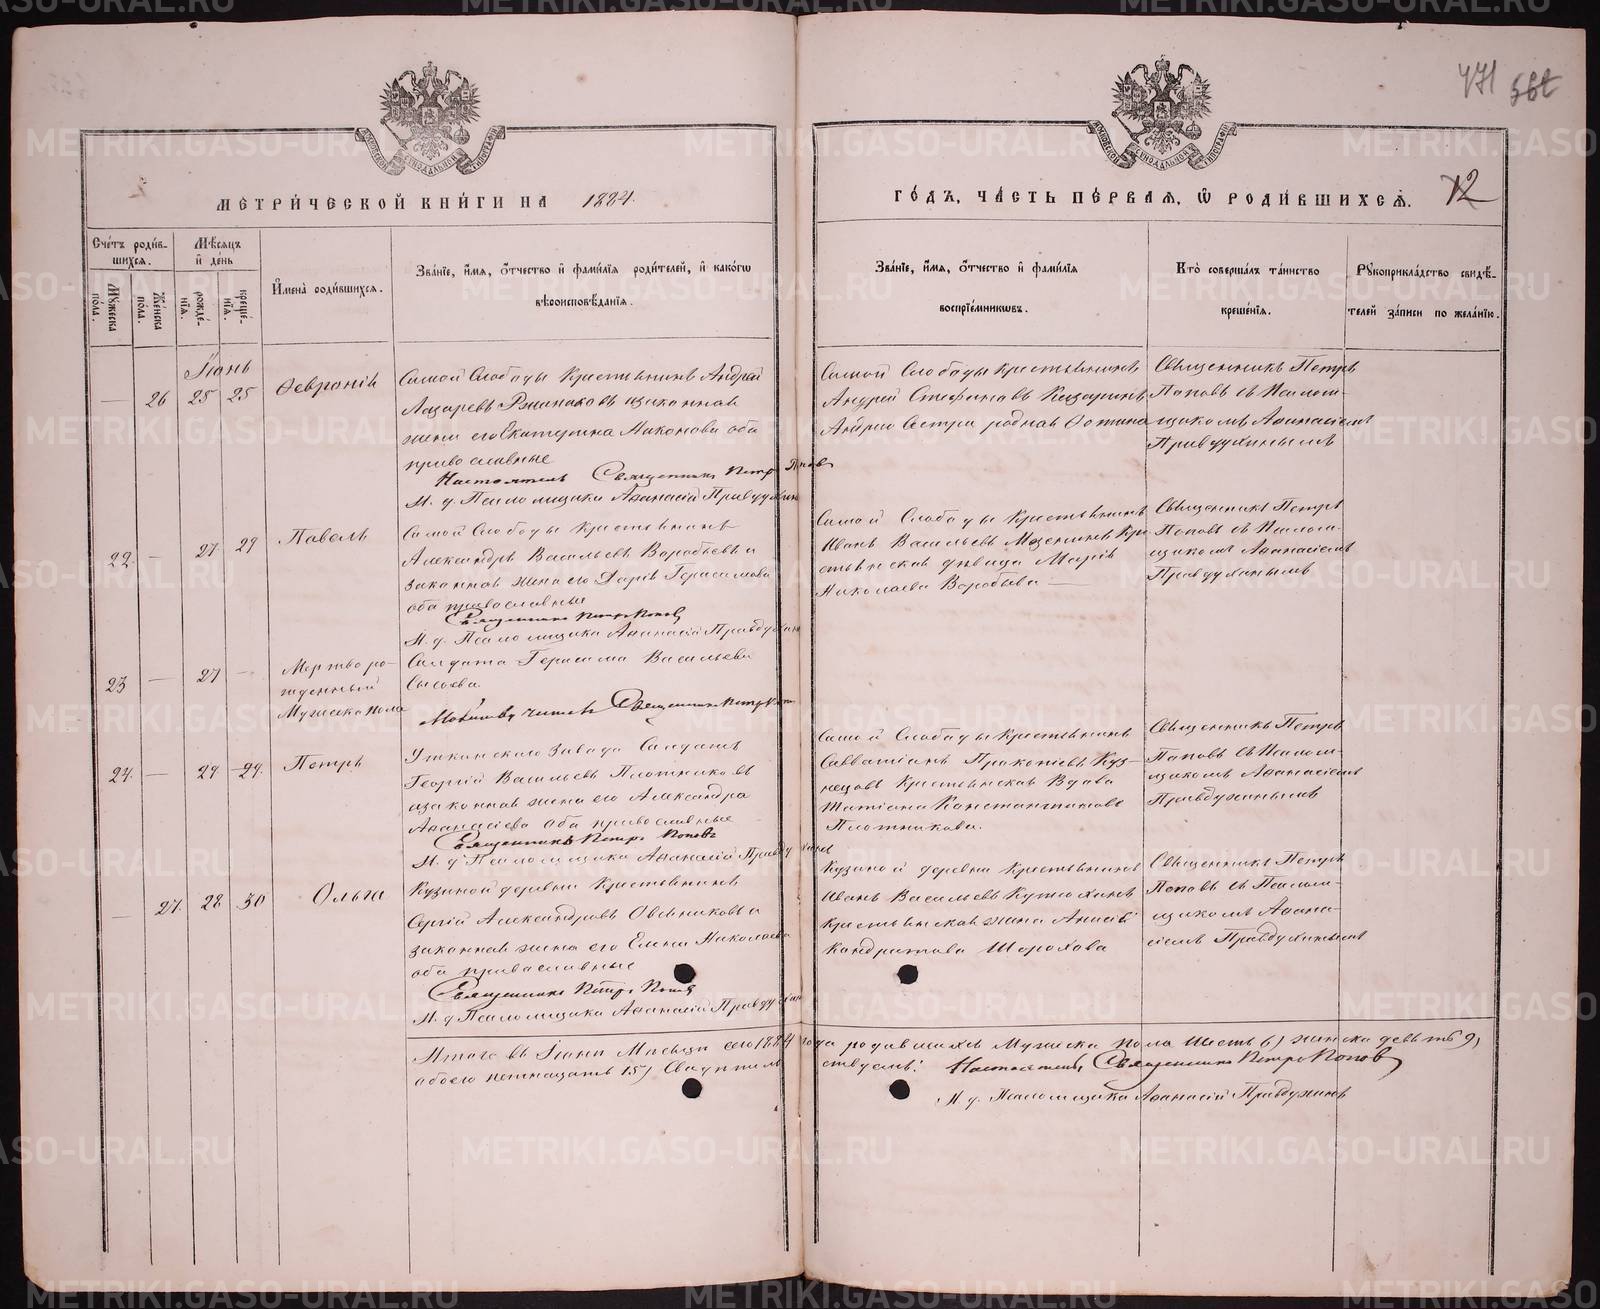 471 562
МЕТРИ́ЧЕСКОЙ КНИ́ГИ НА 1884.
ГО́ДЪ, ЧА́СТЬ ПЕ́РВАѦ, Ѽ РОДИ́ВШИХСѦ. 12
Сче́тъ роди́вшихсѧ.
Мꙋжеска по́ла.
Же́нска по́ла.
Мѣ́сѧцъ и҆ де́нь
рожде́нїѧ.
креще́нїѧ.
И҆мена̀ роди́вшихсѧ.
Зва́нїе, и҆́мѧ, ѻ҆́тчество и҆ фами́лїѧ роди́телей, и҆ како́гѡ
вѣроисповѣ́данїѧ.
Зва́нїе, и҆́мѧ, ѻ҆́тчество и҆ фами́лїѧ
воспрїе́мникѡвъ.
Кто̀ соверша́лъ та́инство
креще́нїѧ.
Рꙋкоприкла́дство свидѣ́телей за́писи по жела́нїю.
Іюнь
26 25 25 Февронія
Самой Слободы Крестьянинъ Андрей
Лазаревъ и законная
жена его Екатерина Никонова оба
православные
Настоятель Священникъ Петръ Поповъ
И. д. Псаломщика Афанасій Правдухинъ
Самой Слободы Крестьянинъ
Андрей Стефановъ Казаринъ
Андрея Сестра родная Фотина
Священникъ Петръ
Поповъ съ Псалом-
щикомъ Афанасіемъ
Правдухинымъ
22 — 27 29 Павелъ
Самой Слободы Крестьянинъ
Александръ Васильевъ Воробьевъ и
законная жена его Дарія Герасимова
оба православные
Священникъ Петръ Поповъ
И. д. Псаломщика Афанасій Правдухинъ
Самой Слободы Крестьянинъ
Иванъ Васильевъ Мезенинъ Кре-
стьянская дѣвица Марія
Николаева Воробьева —
Священникъ Петръ
Поповъ съ Псалом-
щикомъ Афанасіемъ
Правдухинымъ
23 — 27 — Мертворо-
жденный
Мужеска пола
Солдата Герасима Васильева
Сысоева
Молитву читалъ Священникъ Петръ Поповъ
24. — 29 29. Петръ
Уткинскаго Завода Солдатъ
Георгій Васильевъ Плотниковъ
и законная жена его Александра
Афанасіева оба православные
Священникъ Петръ Поповъ
И. д. Псаломщика Афанасій Правдухинъ
Самой Слободы Крестьянинъ
Савватіанъ Прокопіевъ Куз-
нецовъ Крестьянская Вдова
Татіана Константинова
Плотникова.
Священникъ Петръ
Поповъ съ Псалом-
щикомъ Афанасіемъ
Правдухинымъ
— 27. 28 30 Ольга
Кузиной деревни Крестьянинъ
Сергій Александровъ Овсяниковъ и
законная жена его Елена Николаева
оба православные
Священникъ Петръ Поповъ
И. д. Псаломщика Афанасій Правдухинъ
Кузиной деревни Крестьянинъ
Иванъ Васильевъ Кутюхинъ
Крестьянская жена Анисія
Кондратова Шорохова
Священникъ Петръ
Поповъ съ Псалом-
щикомъ Афана-
сіемъ Правдухинымъ
Итого въ Іюнѣ Мѣсяцѣ сего 1884 года родившихся Мужска пола шесть 6) женска девять 9)
обоего пятнадцать 15) Свидѣтельствуемъ: Настоятель, Священникъ Петръ Поповъ
И. д. Псаломщика Афанасій Правдухинъ